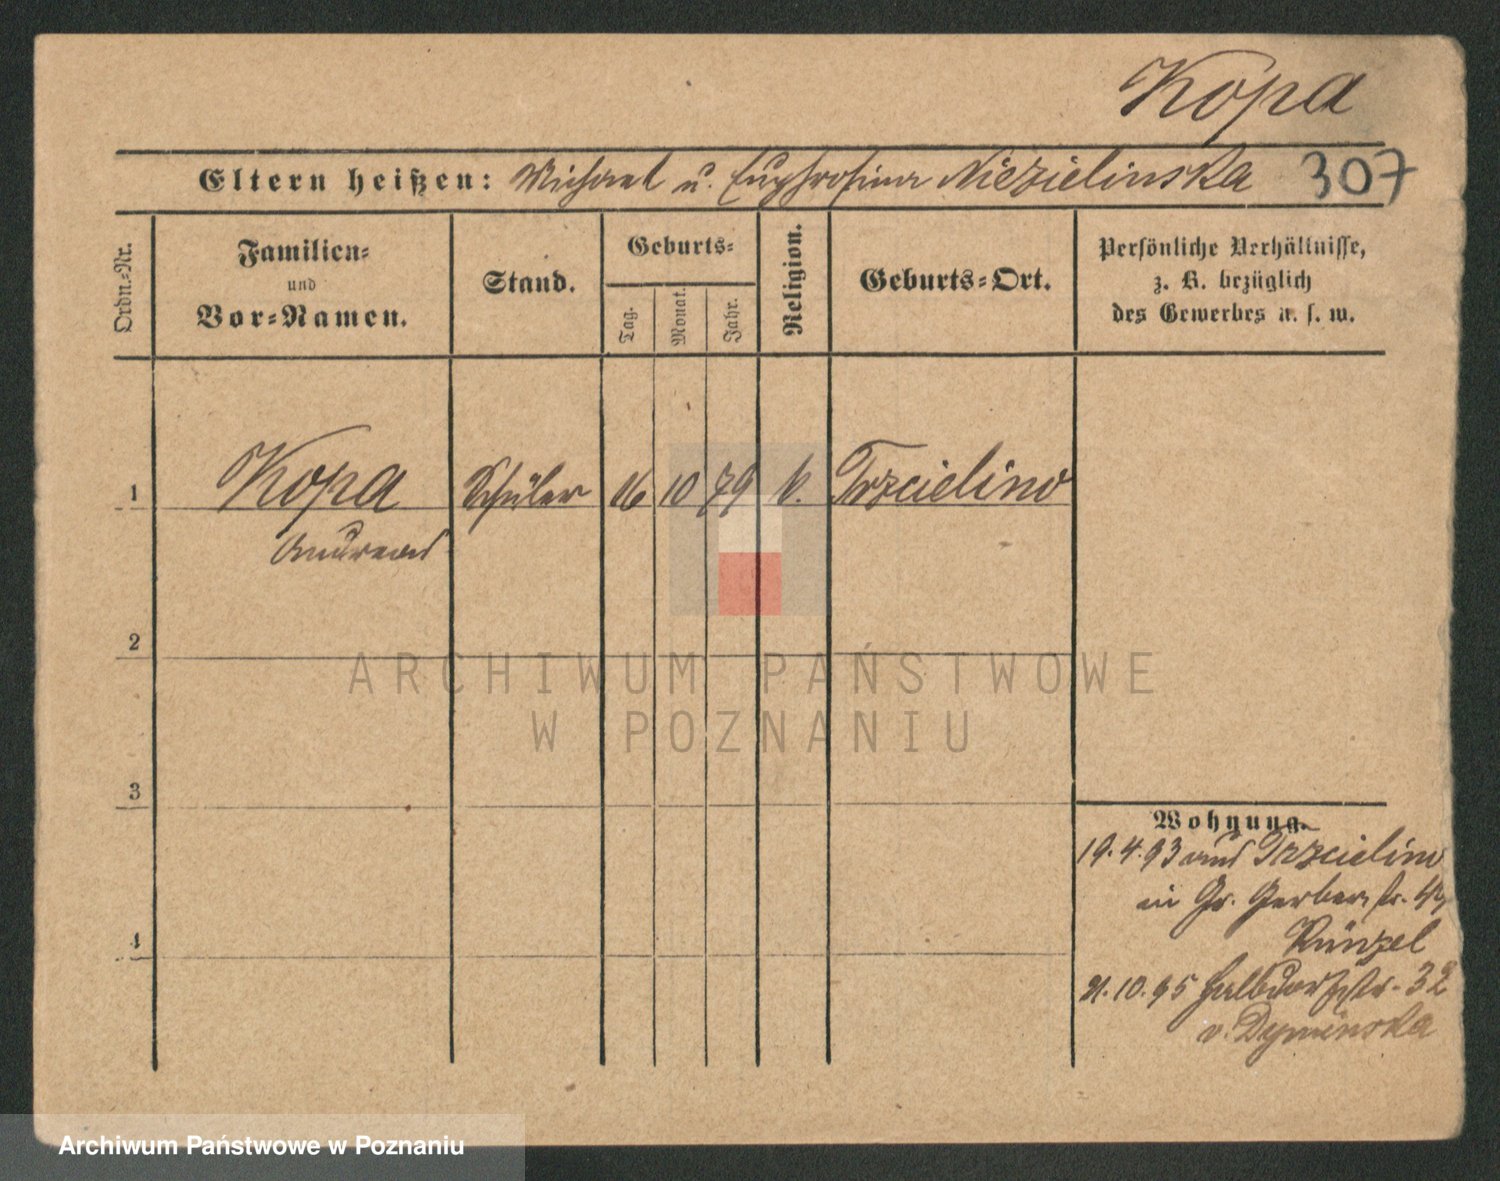 Kopa
Eltern heißen: Michael u. Euphrosina Niezielinska 307
Ordn.-Nr.
Familien-
und
Vor-Namen.
Stand.
Geburts-
Tag.
Monat.
Jahr.
Religion.
Geburts-Ort.
Persönliche Verhältnisse,
z. B. bezüglich
des Gewerbes u. s. w.
1 Kopa Schüler 16 10 79 k. Trzcielino
Andreas
2
ARCHIWUM PAŃSTWOWE
W POZNANIU
3
Wohnung.
19.4.93 aus Trzcielino
in Gr. Gerberstr.
4
Künzel
21.10.95 Halbdorfstr. 32
v. Dyminska
Archiwum Państwowe w Poznaniu